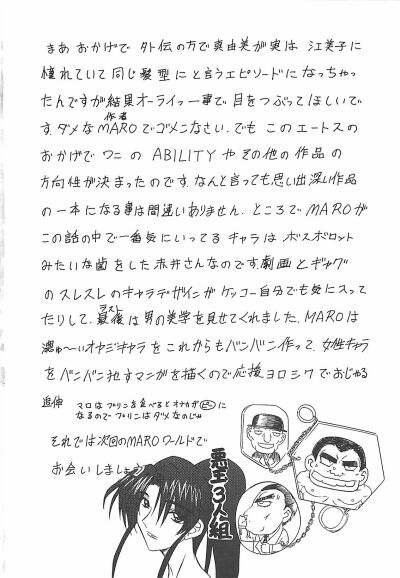 まあ おかげで 外伝の方で真由美が実は江美子に
憧れていて同じ髪型にと言うエピソードになっちゃっ
たんですが結果オーライっ一事で目をつぶってほしいで
す。ダメな作者MAROでゴメンなさい。でも このエートスの
おかげでワニの ABILITYや その他の作品の
方向性が決まったのです。なんと言っても思い出深い作品
の一本になる事は間違いありません。ところでMAROが
この話の中で一番気にいってる キャラは ボスボロット
みたいな歯をした赤井さんなのです。劇画とギャグ
のスレスレのキャラデザインが ケッコー自分でも気に入って
たりして。最後は男の美学を見せてくれました。MAROは
濃ゅ〜いオヤジキャラをこれからもバンバン作って、女性キャラ
をバンバン犯すマンガを描くので応援ヨロシクでおじゃる
追伸 マロはプリンを食べるとオナカが
になるのでプリンはダメなのじゃ
それでは次回のMAROワールドで
お会いしましょう
悪玉3人組